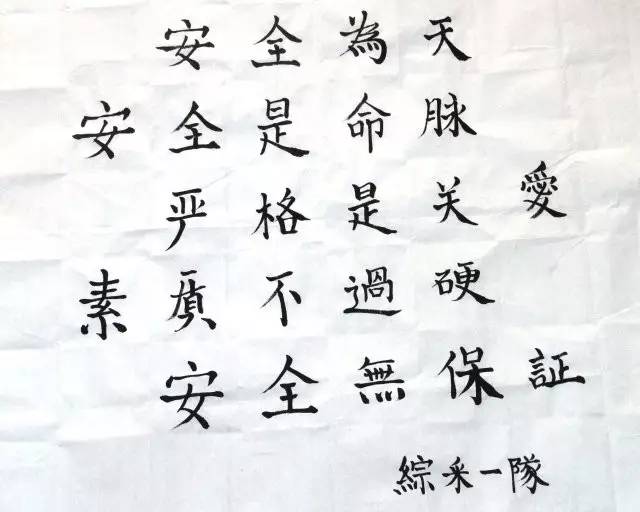 安全為天
安全是命脉
严格是关愛
素质不過硬
安全無保証
綜采一隊